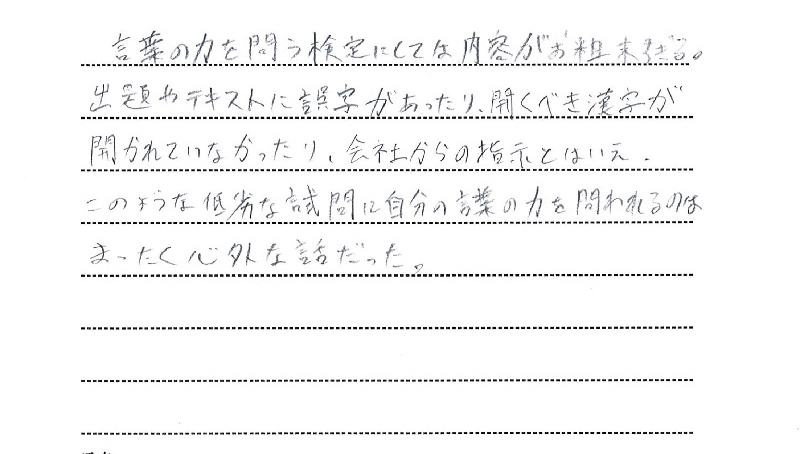 言葉の力を問う検定にしては内容がお粗末すぎる。
出題やテキストに誤字があったり、開くべき漢字が
開かれていなかったり、会社からの指示とはいえ、
このような低劣な試問に自分の言葉の力を問われるのは
まったく心外な話だった。